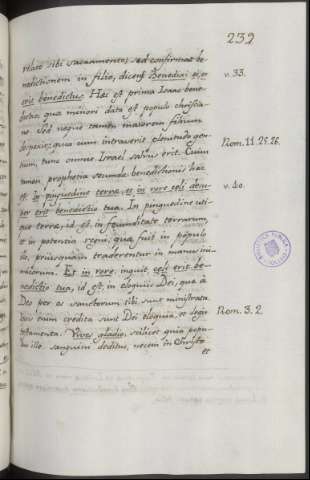 239
relato sibi sacramento, sed confirmat be-
nedictionem in filio, dicens Benedixi ei, et
erit benedictus. Hæc est prima Isaac bene-
dictio, quæ minori data est populo christia-
no. Sed neque tamen maiorem filium
quia cum intraverit plenitudo gen-
tium, tunc omnis Israel salvus erit. Cuius
tamen prophetia secundæ benedictionis hæc
est. in pinguedine terræ, et in rore cœli desu-
per erit benedictio tua. In pinguedine uti-
que terræ, id est, in fœcunditate terrarum,
et in potentia regni, quæ fuit in populo
illo, priusquam traderentur in manus ini-
micorum. Et in rore, inquit, cœli erit be-
nedictio tua, id est, in eloquiis Dei, quæ à
Deo per os sanctorum sibi sunt ministrata.
enim credita sunt Dei eloquia, et legis
Vives gladio, scilicet quia popu-
lus ille sanguini deditus, necem in Christo
et
v. 33.
Rom. 11. 25. 26.
v. 40.
Rom. 3. 2.